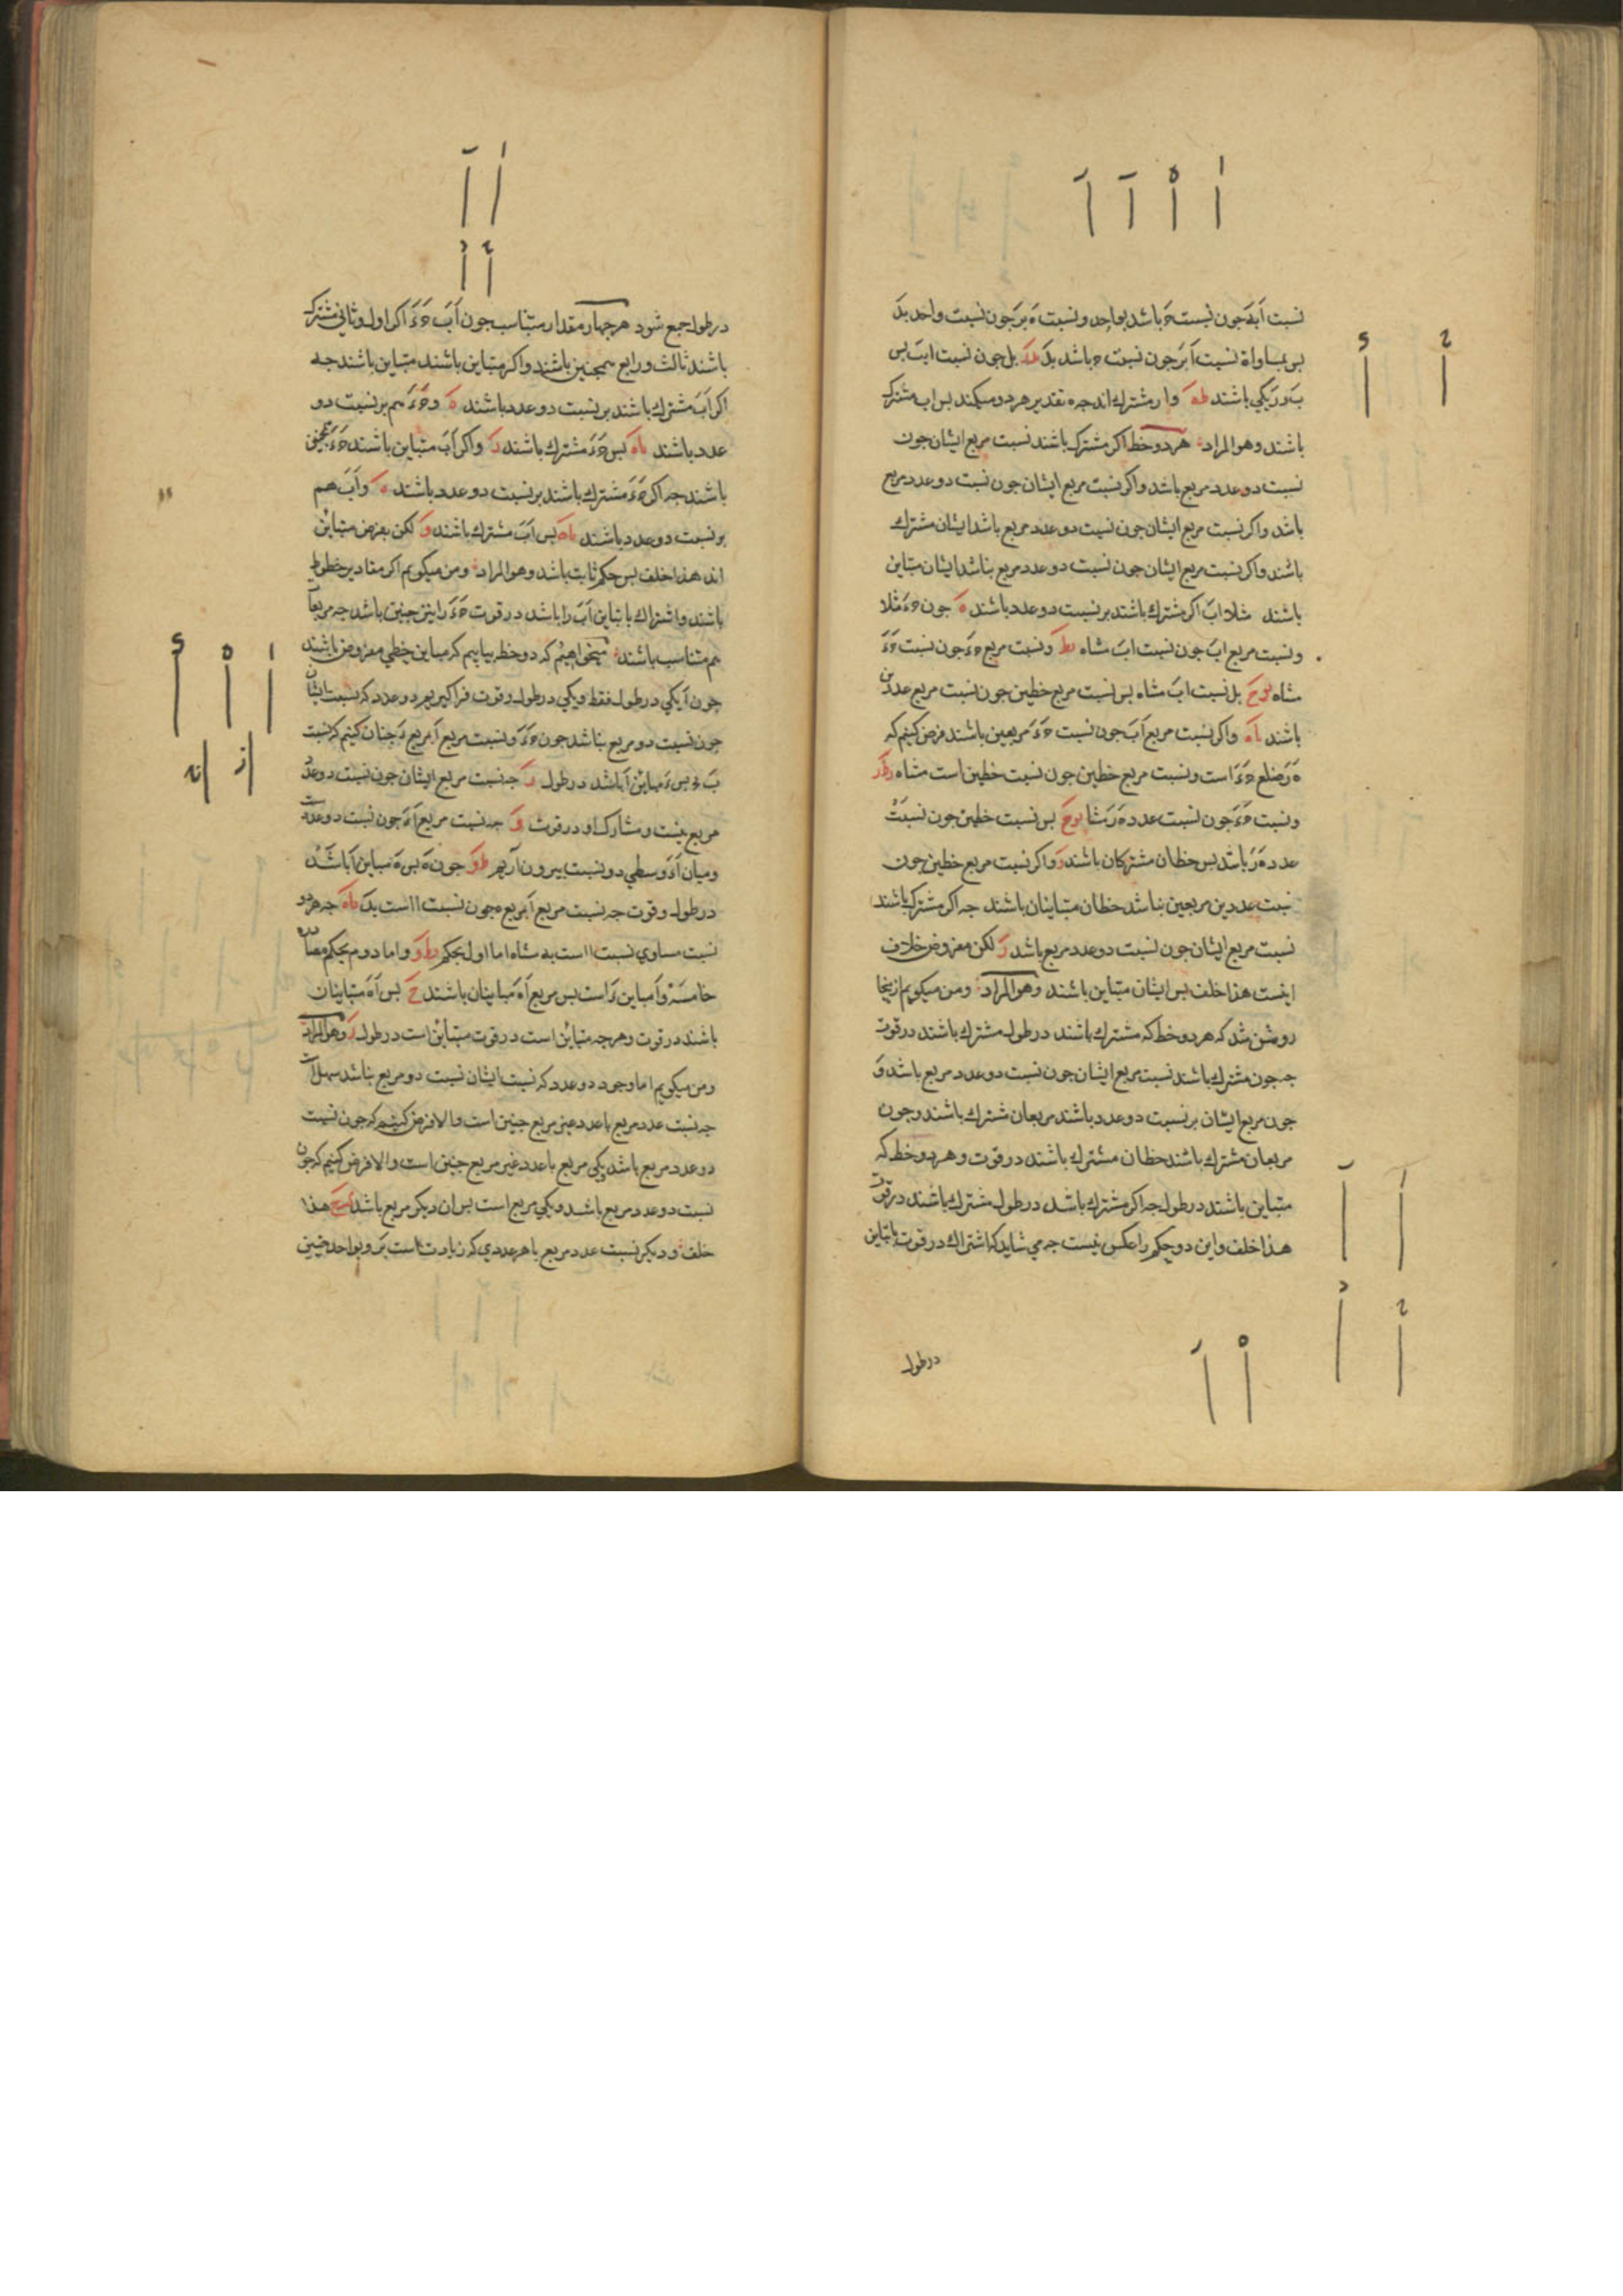 نسبت آ بـه چون نسبت حَ باشد بواحد و نسبت ه بر چون نسبت واحد بدَ
پس بمساواة نسبت اَ بر چون نسبت ح باشد بدَ بل چون نسبت اب پس
بَ و رَ یکی باشند و ار مشترک اند چه ه تقدیر هر دو میکند پس اب مشترک
باشند وهو المراد هر دو خط اکر مشترک باشند نسبت مربع ایشان چون
نسبت دو عدد مربع باشد واکر نسبت مربع ایشان چون نسبت دو عدد مربع
باشد واکر نسبت مربع ایشان چون نسبت دو عدد مربع باشد ایشان مشترک
باشند واکر نسبت مربع ایشان چون نسبت دو عدد مربع نباشد ایشان متباین
باشند مثلا ابَ اکر مشترک باشند بر نسبت دو عدد باشند هَ چون حَ ءَ مثلا
ونسبت مربع ابَ چون نسبت ابَ مثناه ونسبت مربع حَ ءَ چون نسبت حَ ءَ
مثناه بل نسبت ابَ مثناه پس نسبت مربع خطین چون نسبت مربع عددین
باشند واکر نسبت مربع اَبَ چون نسبت حَ ءَ مربعین باشند فرض کنیم که
هَ رَ ضلع حَ ءَ است و نسبت مربع خطین چون نسبت خطین است مثناه
ونسبت حَ ءَ چون نسبت عدد هَ رَ مثنا پس نسبت خطین چون نسبت
عدد هَ رَ باشد پس خطان مشترکان باشند واکر نسبت مربع خطین چون
نسبت عددین مربعین نباشد خطان متباینان باشند چه اکر مشترک باشند
نسبت مربع ایشان چون نسبت دو عدد مربع باشد لکن مفروض خلاف
اینست هذا خلف پس ایشان متباین باشند وهو المراد ومن میکویم ازینجا
روشن شد که هر دو خط که مشترک باشند در طول مشترک باشند در قوت
چه چون مشترک باشند نسبت مربع ایشان چون نسبت دو عدد مربع باشد وَ
چون مربع ایشان بر نسبت دو عدد باشند مربعان مشترک باشند وچون
مربعان مشترک باشند خطان مشترک باشند در قوت و هر دو خط که
متباین باشند در طول چه اکر مشترک باشد در طول مشترک باشند در قوت
هذا خلف واین دو حکم را عکس نیست چه می شاید که اشتراک در قوت با تباین
در طول
در طول جمع شود هر چهار مقدار متناسب چون اَبَ حَ ءَ اکر اول وثانی مشترک
باشند ثالث ورابع همچنین باشند واکر متباین باشند متباین باشند چه
اکر اَبَ مشترک باشند بر نسبت دو عدد باشند هَ وحَ ءَ هم بر نسبت دو
عدد باشند پس حَ ءَ مشترک باشند واکر اَبَ متباین باشند حَ ءَ همچنین
باشند چه اکر حَ ءَ مشترک باشند بر نسبت دو عدد باشند هَ واَبَ هم
بر نسبت دو عدد باشند پس اَبَ مشترک باشند وَ لکن بفرض متباین
اند هذا خلف پس حکم ثابت باشد وهو المراد ومن میکویم اکر مقادیر خطوط
باشند و اشتراک یا تباین اَبَ را باشد در قوت حَ ءَ را نیز چنین باشد چه مربعا
هم متناسب باشند میخواهیم که دو خط بیابیم که مباین خطی مفروض باشند
چون اَ یکی در طول فقط و یکی در طول وقوت فرا کیریم دو عدد که نسبت ایشان
چون نسبت دو مربع نباشد چون حَ ءَ و نسبت مربع اَ بمربع ءَ چنان کنیم که نسبت
پس ءَ مباین اَ باشد در طول چه نسبت مربع ایشان چون نسبت دو عدد
مربع نیست ومشارک او در قوت وَ چه نسبت مربع اَ ءَ چون نسبت دو عدد است
ومیان اَ ءَ وسطی در نسبت بیرون آریم چون هَ پس هَ مباین اَ باشد
در طول وقوت چه نسبت مربع اَ بمربع ه چون نسبت ا است بدَ چه هر دو
نسبت مساوی نسبت ا است به مثناه اما اول بحکم واما دوم بحکم مصادره
خامسه و اَ مباین ءَ است پس مربع اَ هَ متباینان باشند حَ پس اَ هَ متباینان
باشند در قوت وهرچه متباین است در قوت متباین است در طول وهو المراد
ومن میکویم اما وجود دو عدد که نسبت ایشان نسبت دو مربع نباشد سهل است
چه نسبت عدد مربع با عدد غیر مربع چنین است والا فرض کنیم که چون نسبت
دو عدد مربع باشد یکی مربع با عدد غیر مربع چنین است والا فرض کنیم که چون
نسبت دو عدد مربع باشد و یکی مربع است پس ان دیکر مربع باشد هذا
خلف ودیکر نسبت عدد مربع با هر عددی که زیادت است برو بواحد چنین